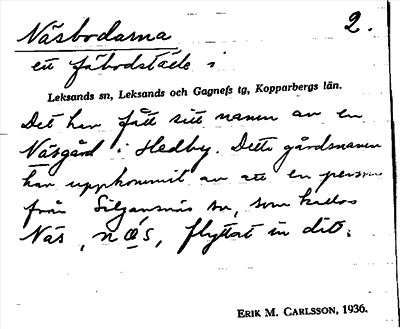 Näsbodarna 2.
ett fäbodställe i
Leksands sn, Leksands och Gagnefs tg, Kopparbergs län.
Det har fått sitt namn av en
Näsgård i Hedby. Detta gårdsnamn
har uppkommit av att en person
från Siljansnäs sn, som kallas
Näs, nα̣s, flyttat in dit.
ERIK M. CARLSSON, 1936.